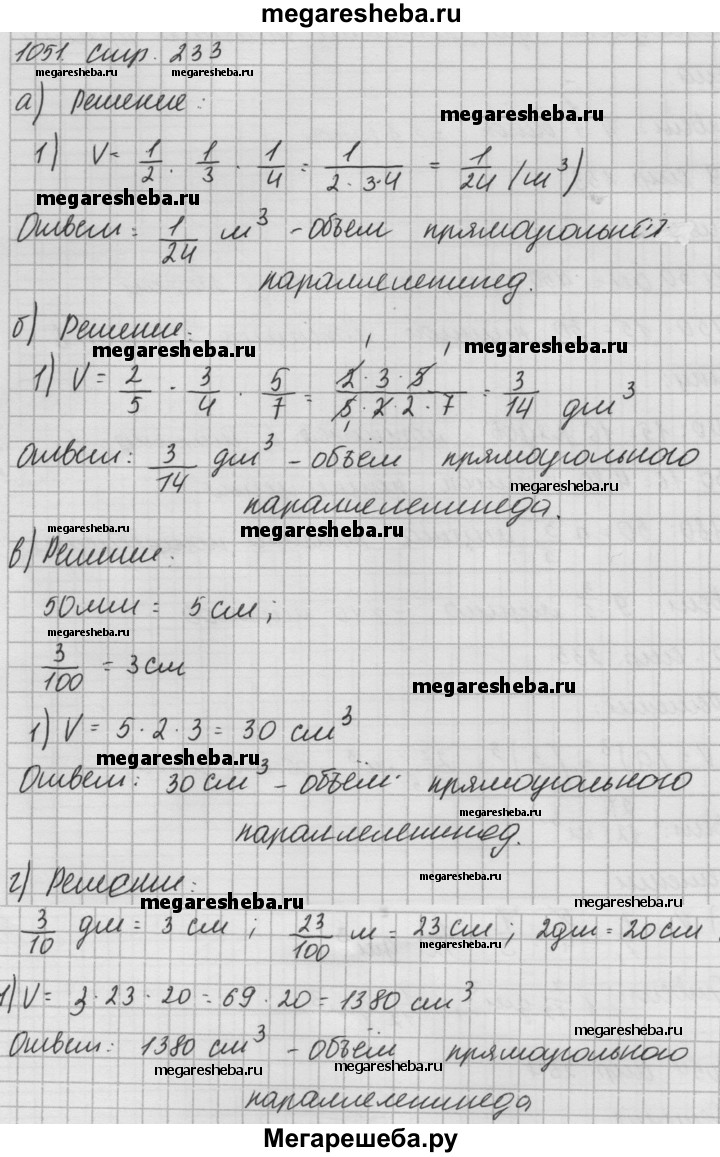 megaresheba.ru
1051. стр. 233
megaresheba.ru megaresheba.ru
а) Решение:
megaresheba.ru
1) V = 1/2 · 1/3 · 1/4 = 1/(2·3·4) = 1/24 (м³)
megaresheba.ru
Ответ: 1/24 м³ - объем прямоугольный
параллелепипед.
б) Решение:
megaresheba.ru megaresheba.ru
1) V = 2/5 · 3/4 · 5/7 = (2·3·5)/(5·2·2·7) = 3/14 дм³
Ответ: 3/14 дм³ - объём прямоугольного
megaresheba.ru
параллелепипеда.
megaresheba.ru megaresheba.ru
в) Решение:
50мм = 5см;
megaresheba.ru
3/100 = 3см
megaresheba.ru
1) V = 5·2·3 = 30 см³
megaresheba.ru
Ответ: 30 см³ - объём прямоугольного
megaresheba.ru
параллелепипед.
г) Решение:
megaresheba.ru
megaresheba.ru megaresheba.ru
3/10 дм = 3 см; 23/100 м = 23 см; 2дм = 20 см.
megaresheba.ru
1) V = 3·23·20 = 69·20 = 1380 см³
megaresheba.ru
Ответ: 1380 см³ - объём прямоугольного
megaresheba.ru megaresheba.ru
параллелепипеда
Мегарешеба.ру